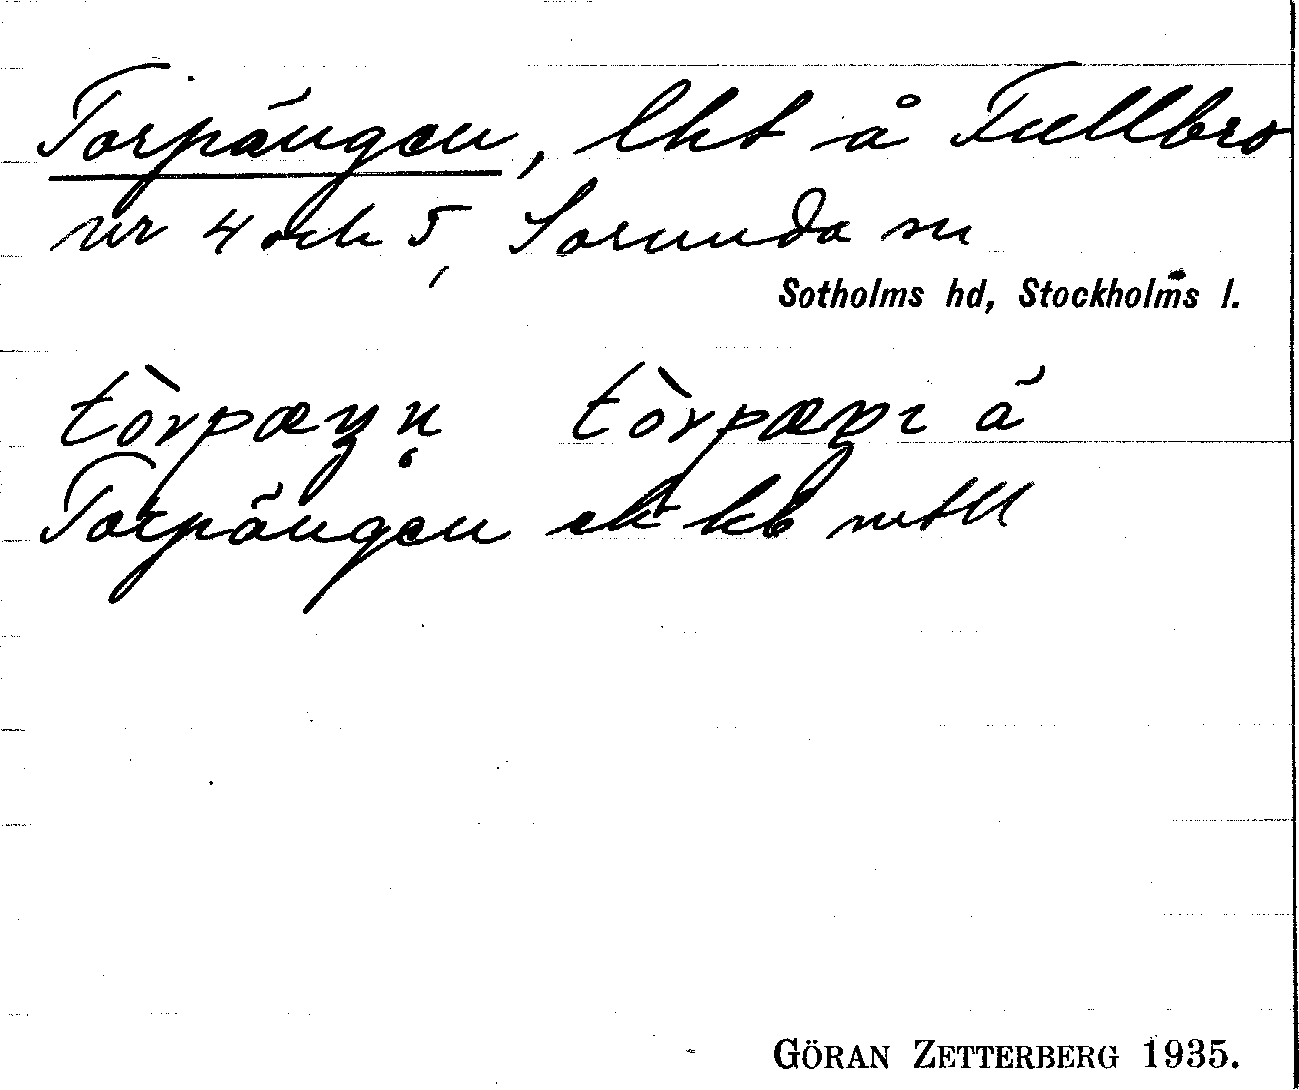 Torpängen, lht å Fullbro
nr 4 och 5, Sorunda sn
Sotholms hd, Stockholms l.
tòrpæŋn̥ tòrpæŋı ä
Torpängen ek kb
GÖRAN ZETTERBERG 1935.